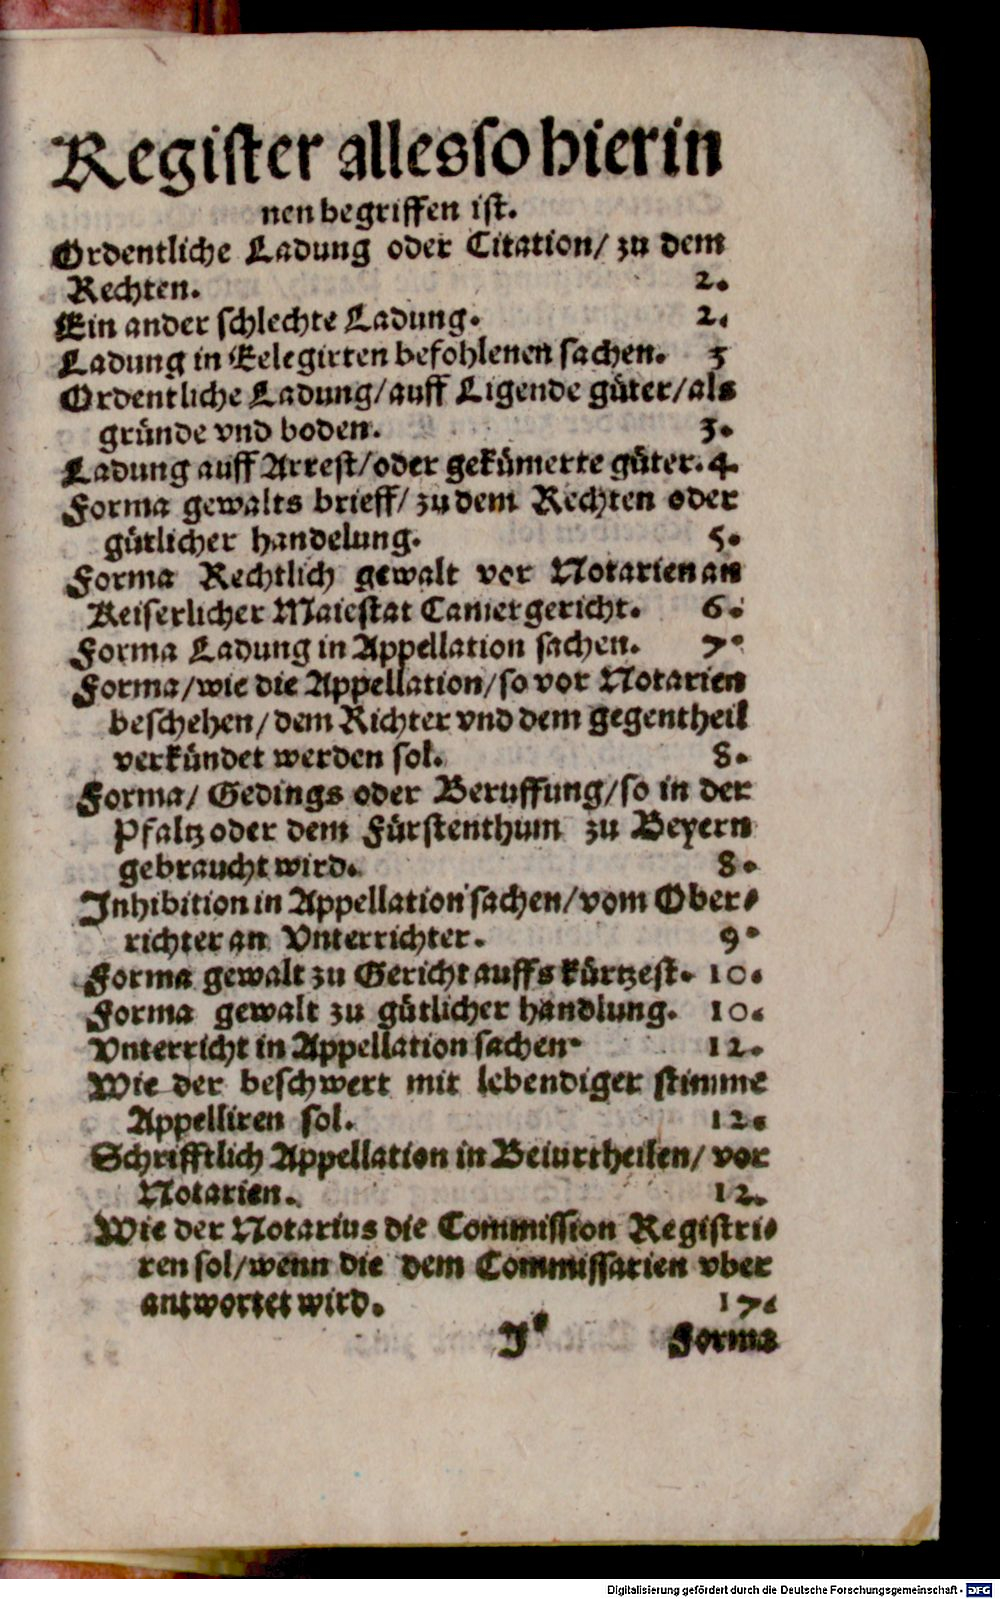 Register alles so hierin
nen begriffen ist.
Ordentliche Ladung oder Citation/ zu dem
Rechten. 2.
Ein ander schlechte Ladung. 2.
Ladung in Eelegirten befohlenen sachen. 3
Ordentliche Ladung/auff Ligende güter/als
gründe vnd boden. 3.
Ladung auff Arrest/oder gekümerte güter. 4.
Forma gewalts brieff/ zu dem Rechten oder
gütlicher handelung. 5.
Forma Rechtlich gewalt vor Notarien an
Keiserlicher Maiestat Camergericht. 6.
Forma Ladung in Appellation sachen. 7.
Forma/wie die Appellation/so vor Notarien
beschehen/dem Richter vnd dem gegentheil
verkündet werden sol. 8.
Forma/ Gedings oder Beruffung/so in der
Pfaltz oder dem Fürstenthum zu Beyern
gebraucht wird. 8.
Inhibition in Appellation sachen/vom Ober-
richter an Vnterrichter. 9.
Forma gewalt zu Gericht auffs kürtzest. 10.
Forma gewalt zu gütlicher handlung. 10.
Vnterricht in Appellation sachen. 12.
Wie der beschwert mit lebendiger stimme
Appelliren sol. 12.
Schrifftlich Appellation in Beiurtheilen/ vor
Notarien. 12.
Wie der Notarius die Commission Registri-
ren sol/wenn die dem Commissarien vber
antwortet wird. 17.
J* Forma
Digitalisierung gefördert durch die Deutsche Forschungsgemeinschaft - DFG